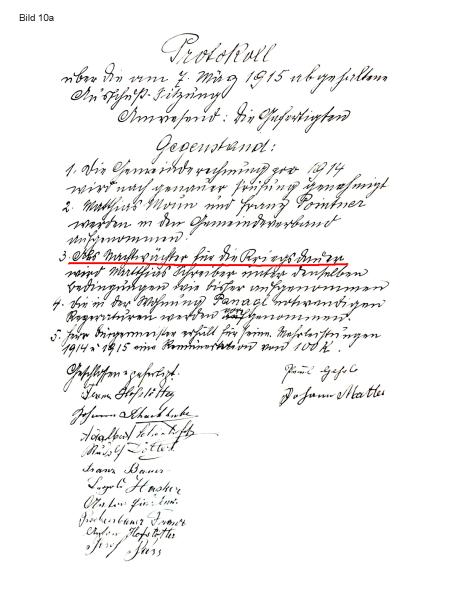 Bild 10a
Protokoll
über die am 7. März 1915 abgehaltene
Ausschuß-Sitzung
Anwesend: die Gefertigten
Gegenstand:
1. Die Gemeinderechnung pro 1914
wird nach genauer Prüfung genehmigt
2. Matthias Moun und Franz Pointner
werden in den Gemeindeverband
aufgenommen.
3. Als Nachtwächter für die Kriegsdauer
wird Matthias Schreiber unter denselben
Bedingungen wie bisher aufgenommen
4. die in der Wohnung Panagl notwendigen
Reparaturen werden vorgenommen.
5. Herr Bürgermeister erhält für seine Mehrleistungen
1914 u 1915 eine Remuneration von 100 K.
Geschlossen & gefertigt:
Johann Mattes
Johann
Adalbert
Rudolf Dittel
Franz Bauer
Leopold
Franz
Anton Hofstätter
Josef